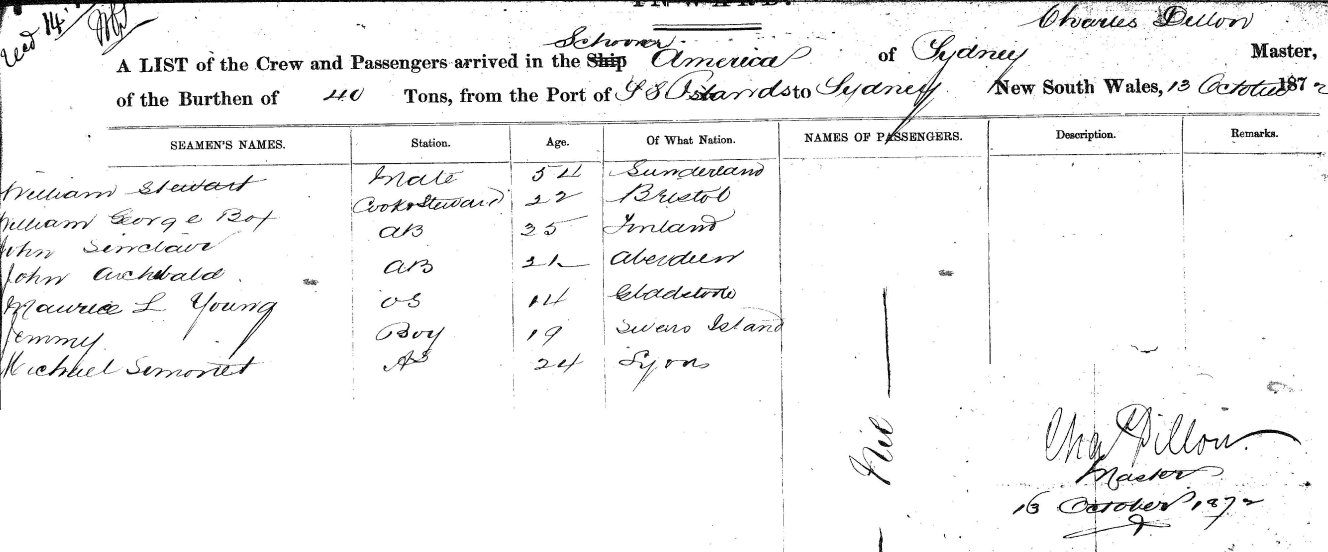 INWARD.
Recd 14
Charles Dillon
Schooner
A LIST of the Crew and Passengers arrived in the Ship America of Sydney Master,
of the Burthen of 40 Tons, from the Port of S S Islands to Sydney New South Wales, 13 October 1872
SEAMEN'S NAMES. Station. Age. Of What Nation. NAMES OF PASSENGERS. Description. Remarks.
William Stewart Mate 54 Sunderland
William George Box Cook & Steward 22 Bristol
John Sinclair AB 25 Finland
John Archbald AB 21 Aberdeen
Maurice L Young OS 14 Gladstone
Jemmy Boy 19 Island
Michael Simonet AB 24 Lyons
Nil
Chas Dillon
Master
13 October 1872